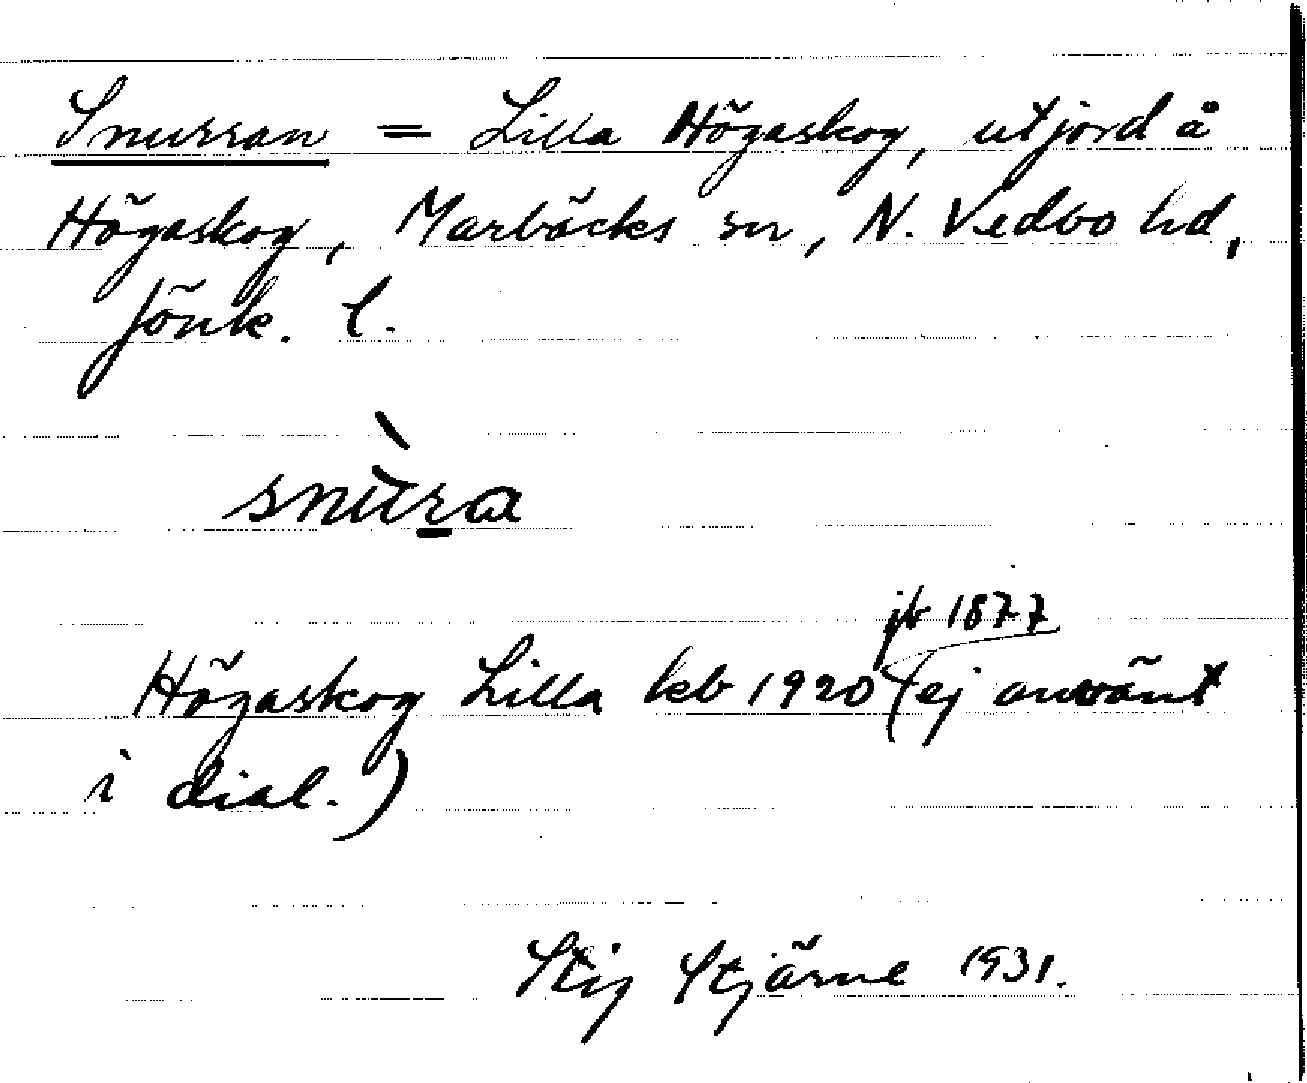 Snurran = Lilla Högaskog, utjord å
Högaskog, Marbäcks sn, N. Vedbo hd,
Jönk. l.
snùra
jb 1877
Högaskog Lilla kb 1920 (ej använt
i dial.)
Stig Stjärne 1931.